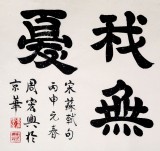 我無
憂
宋蘇軾句
丙申元春
周宏興於
京華